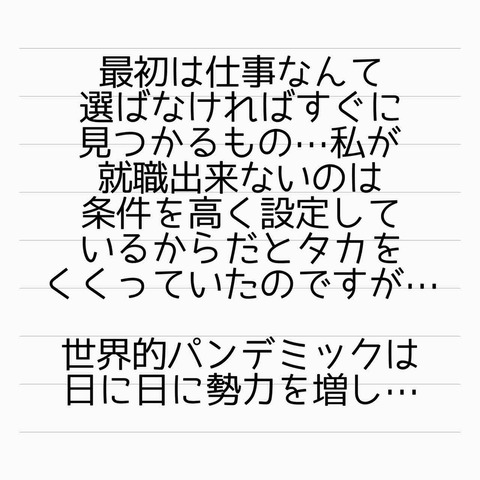 最初は仕事なんて
選ばなければすぐに
見つかるもの…私が
就職出来ないのは
条件を高く設定して
いるからだとタカを
くくっていたのですが…
世界的パンデミックは
日に日に勢力を増し…